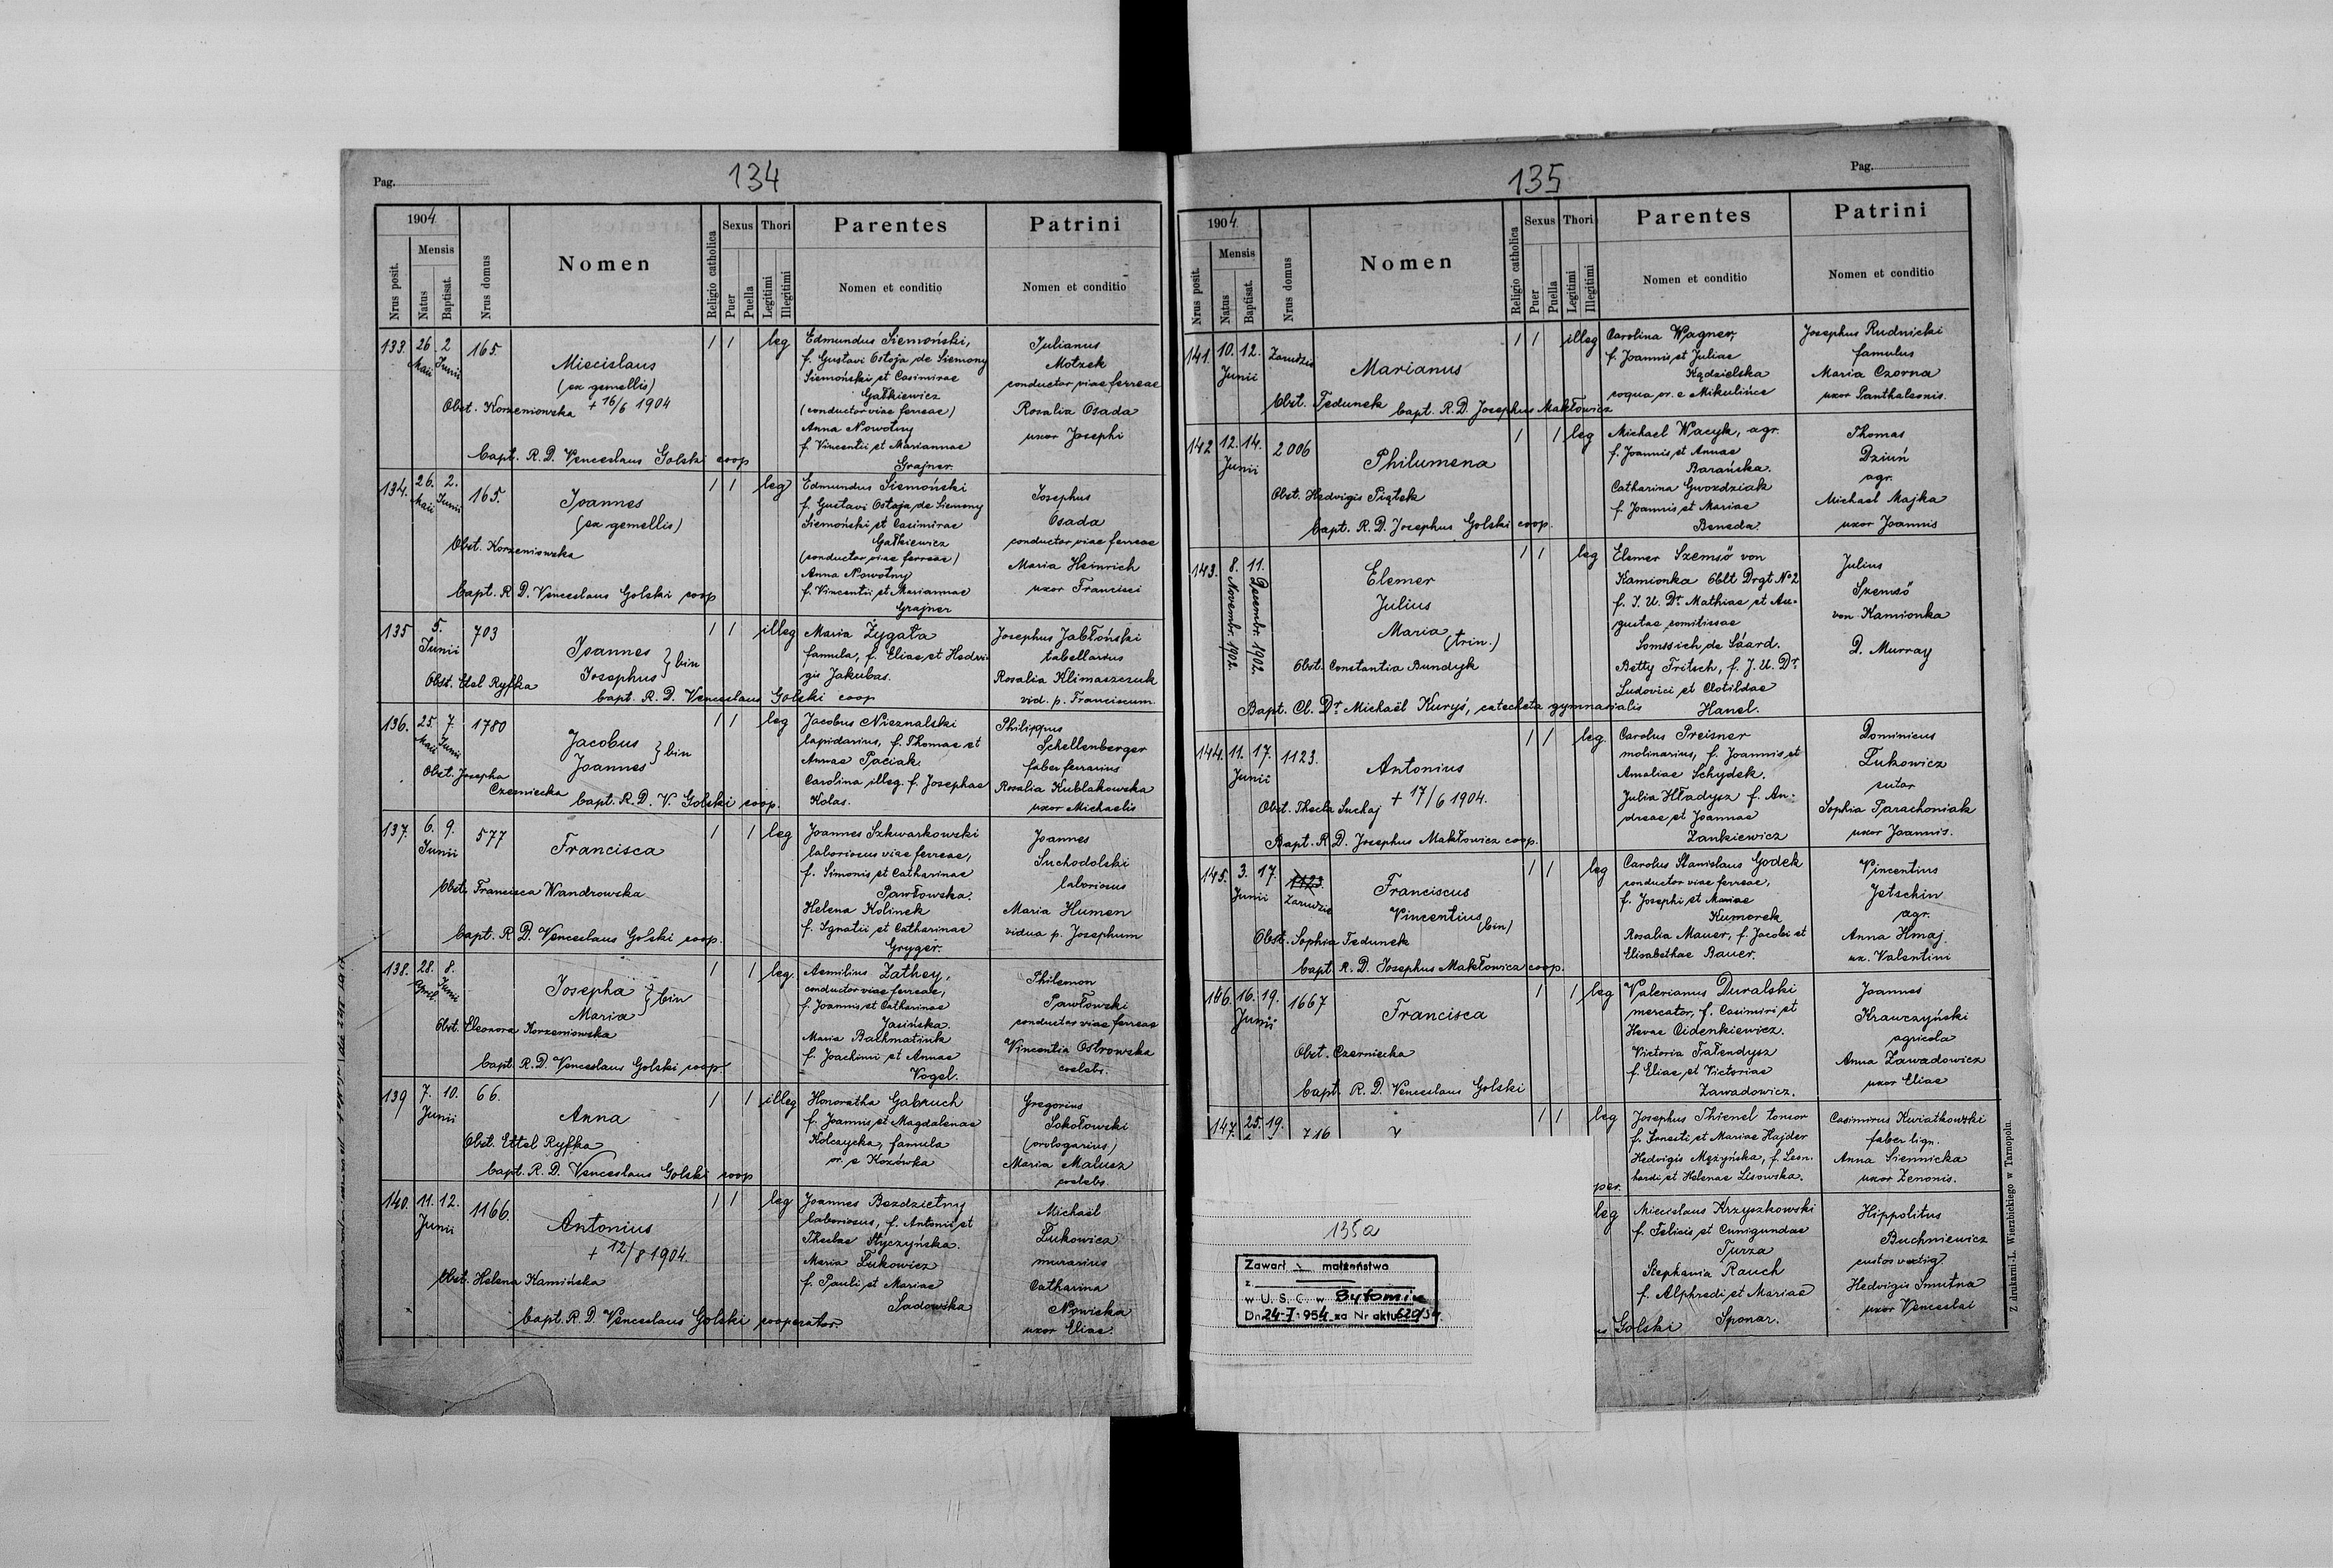 Pag.
134
1904
Mensis
Nrus posit.
Natus
Baptisat.
Nrus domus
Nomen
Religio catholica
Sexus
Puer
Puella
Thori
Legitimi
Illegitimi
Parentes
Nomen et conditio
Patrini
Nomen et conditio
133. 26 Maii 2 Junii 165.
Miecislaus
(ex gemellis)
+ 16/6 1904
Obst. Korzeniowska
bapt. R. D. Venceslaus Golski coop
1 1 leg
Edmundus Siemoński,
f. Gustavi Ostoja de Siemony
Siemoński et Casimirae
Gałkiewicz
(conductor viae ferreae)
Anna Nowotny
f. Vincentii et Mariannae
Grajner.
Julianus
Motzek
conductor viae ferreae
Rosalia Osada
uxor Josephi
134. 26. Maii 2. Junii 165.
Joannes
(ex gemellis)
Obst. Korzeniowska
bapt. R. D. Venceslaus Golski coop
1 1 leg
Edmundus Siemoński
f. Gustavi Ostoja de Siemony
Siemoński et Casimirae
Gałkiewicz
(conductor viae ferreae)
Anna Nowotny
f. Vincentii et Mariannae
Grajner
Josephus
Osada
conductor viae ferreae
Maria Heinrich
uxor Francisci
135 5. Junii 703
Joannes
Josephus } bin
Obst. Etel Ryfka
bapt. R. D. Venceslaus Golski coop
1 1 illeg
Maria Zygała
famula, f. Eliae et Hedvi-
gis Jakubas.
Josephus Jabłoński
tabellarius
Rosalia Klimaszczuk
vid. p. Franciscum
136. 25 Maii 7 Junii 1780
Jacobus
Joannes } bin
Obst. Josepha
Czerniecka
bapt. R. D. V. Golski coop.
1 1 leg
Jacobus Nieznalski
lapidarius, f. Thomae et
Annae Paciak.
Carolina illeg. f. Josephae
Kolas.
Philippus
Schellenberger
faber ferrarius
Rosalia Kublakowska
uxor Michaelis
137. 6. 9. Junii 577
Francisca
Obst. Francisca Wandrowska
bapt. R. D. Venceslaus Golski coop.
1 1 leg
Joannes Szkwarkowski
laboriosus viae ferreae,
f. Simonis et Catharinae
Pawłowska.
Helena Kolinek
f. Ignatii et Catharinae
Gryger.
Joannes
Suchodolski
laboriosus
Maria Humen
vidua p. Josephum
138. 28. April 8. Junii
Josepha
Maria } bin
Obst. Eleonora Korzeniowska
bapt. R. D. Venceslaus Golski coop.
1 1 leg.
Aemilius Zathey,
conductor viae ferreae,
f. Joannis et Catharinae
Jasińska.
Maria Bachmatiuk
f. Joachimi et Annae
Vogel.
Philemon
Pawłowski
conductor viae ferreae
Vincentia Ostrowska
coelebs.
139 7. 10. Junii 66.
Anna
Obst. Ettel Ryfka
bapt. R. D. Venceslaus Golski coop
1 1 illeg
Honoratha Gabruch
f. Joannis et Magdalenae
Kolczycka, famula
or. e Kozówka
Gregorius
Sokołowski
(orologarius)
Maria Malusz
coelebs.
140. 11. 12. Junii 1166.
Antonius
+ 12/8 1904.
Obst. Helena Kamińska
bapt. R. D. Venceslaus Golski cooperator.
1 1 leg
Joannes Bezdzietny
laboriosus, f. Antonii et
Theclae Styczyńska.
Maria Łukowicz
f. Pauli et Mariae
Sadowska
Michael
Łukowicz
murarius
Catharina
Nowicka
uxor Eliae.
135
Pag.
1904
Mensis
Nrus posit.
Natus
Baptisat.
Nrus domus
Nomen
Religio catholica
Sexus
Puer
Puella
Thori
Legitimi
Illegitimi
Parentes
Nomen et conditio
Patrini
Nomen et conditio
141. 10. 12. Junii Zarudzie
Marianus
Obst. Tedunek bapt. R. D. Josephus Makłowicz
1 1 illeg
Carolina Wagner,
f. Joannis et Juliae
Kądzielska
coqua or. e Mikulińce
Josephus Rudnicki
famulus
Maria Czorna
uxor Panthaleonis.
142 12. 14. Junii 2006
Philumena
Obst. Hedvigis Piątek
bapt. R. D. Josephus Golski coop.
1 1 leg
Michael Wacyk, agr.
f. Joannis et Annae
Barańska.
Catharina Gwozdziak
f. Joannis et Mariae
Beneda.
Thomas
Dziuń
agr.
Michael Majka
uxor Joannis
143. 8. Novembr. 1902. 11. Decembr. 1902.
Elemer
Julius
Maria (trin.)
Obst. Constantia Bundyk
Bapt. Cl. Dr. Michaël Kuryś, catecheta gymnasialis
1 1 leg
Elemer Szemsö von
Kamionka Oblt Drgt No 2
f. J. U. Dr. Mathiae et Au-
gustae comitissae
Somssich de Sáard.
Betty Fritsch, f. J. U. Dr.
Ludovici et Clotildae
Hanel.
Julius
Szemsö
von Kamionka
D. Murray
144. 11. 17. Junii 1123.
Antonius
+ 17/6 1904.
Obst. Thecla Suchaj
Bapt. R. D. Josephus Makłowicz coop.
1 1 leg.
Carolus Preisner
molinarius, f. Joannis et
Amaliae Schydek.
Julia Hładysz f. An-
dreae et Joannae
Zankiewicz
Dominicus
Łukowicz
sutor
Sophia Parachoniak
uxor Joannis.
145. 3. 17. Junii 1123 Zarudzie
Franciscus
Vincentius (bin)
Obst. Sophia Tedunek
bapt. R. D. Josephus Makłowicz coop.
1 1 leg
Carolus Stanislaus Godek
conductor viae ferreae,
f. Josephi et Mariae
Kumorek
Rosalia Mauer, f. Jacobi et
Elisabethae Bauer.
Vincentius
Jetschin
agr.
Anna Hmaj.
ux. Valentini
146. 16. 19. Junii 1667
Francisca
Obst. Czerniecka
bapt. R. D. Venceslaus Golski
1 1 leg
Valerianus Duralski
mercator, f. Casimiri et
Hevae Cidenkiewicz.
Victoria Fałendysz
f. Eliae et Victoriae
Zawadowicz.
Joannes
Krawczyński
agricola
Anna Zawadowicz
uxor Eliae
147. 25. 19. 716
1 1 leg
Josephus Thienel tonsor
f. Ernesti et Mariae Hajder
Hedvigis Mężyńska, f. Leon-
hardi et Helenae Lisowska.
Casimirus Kwiatkowski
faber lign.
Anna Siennicka
uxor Zenonis.
per.
leg
Miecislaus Krzyszkowski
f. Felicis et Cunigundae
Turza
Stephania Rauch
f. Alphredi et Mariae
Sponar.
Golski
Hippolitus
Buchniewicz
custos vectig.
Hedvigis Smutna
uxor Venceslai
135a
Zawarł małżeństwo
z
w U. S. C. w Bytomiu
Dn. 24-7-1954 za Nr aktu 620/54.
Z drukarni L. Wierzbickiego w Tarnopolu